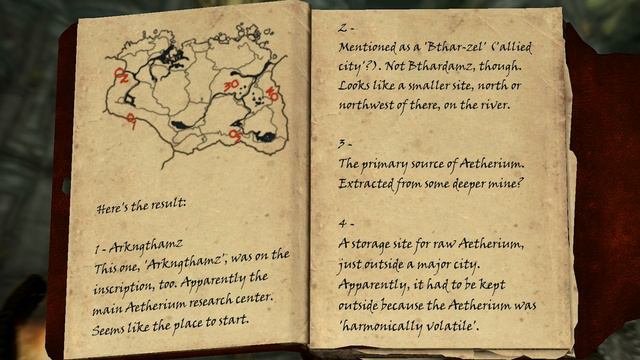 2
3
4
1
5
Here's the result:
1 - Arkngthamz
This one, 'Arkngthamz', was on the
inscription, too. Apparently the
main Aetherium research center.
Seems like the place to start.
2 -
Mentioned as a 'Bthar-zel' ('allied
city'?). Not Bthardamz, though.
Looks like a smaller site, north or
northwest of there, on the river.
3 -
The primary source of Aetherium.
Extracted from some deeper mine?
4 -
A storage site for raw Aetherium,
just outside a major city.
Apparently, it had to be kept
outside because the Aetherium was
'harmonically volatile'.